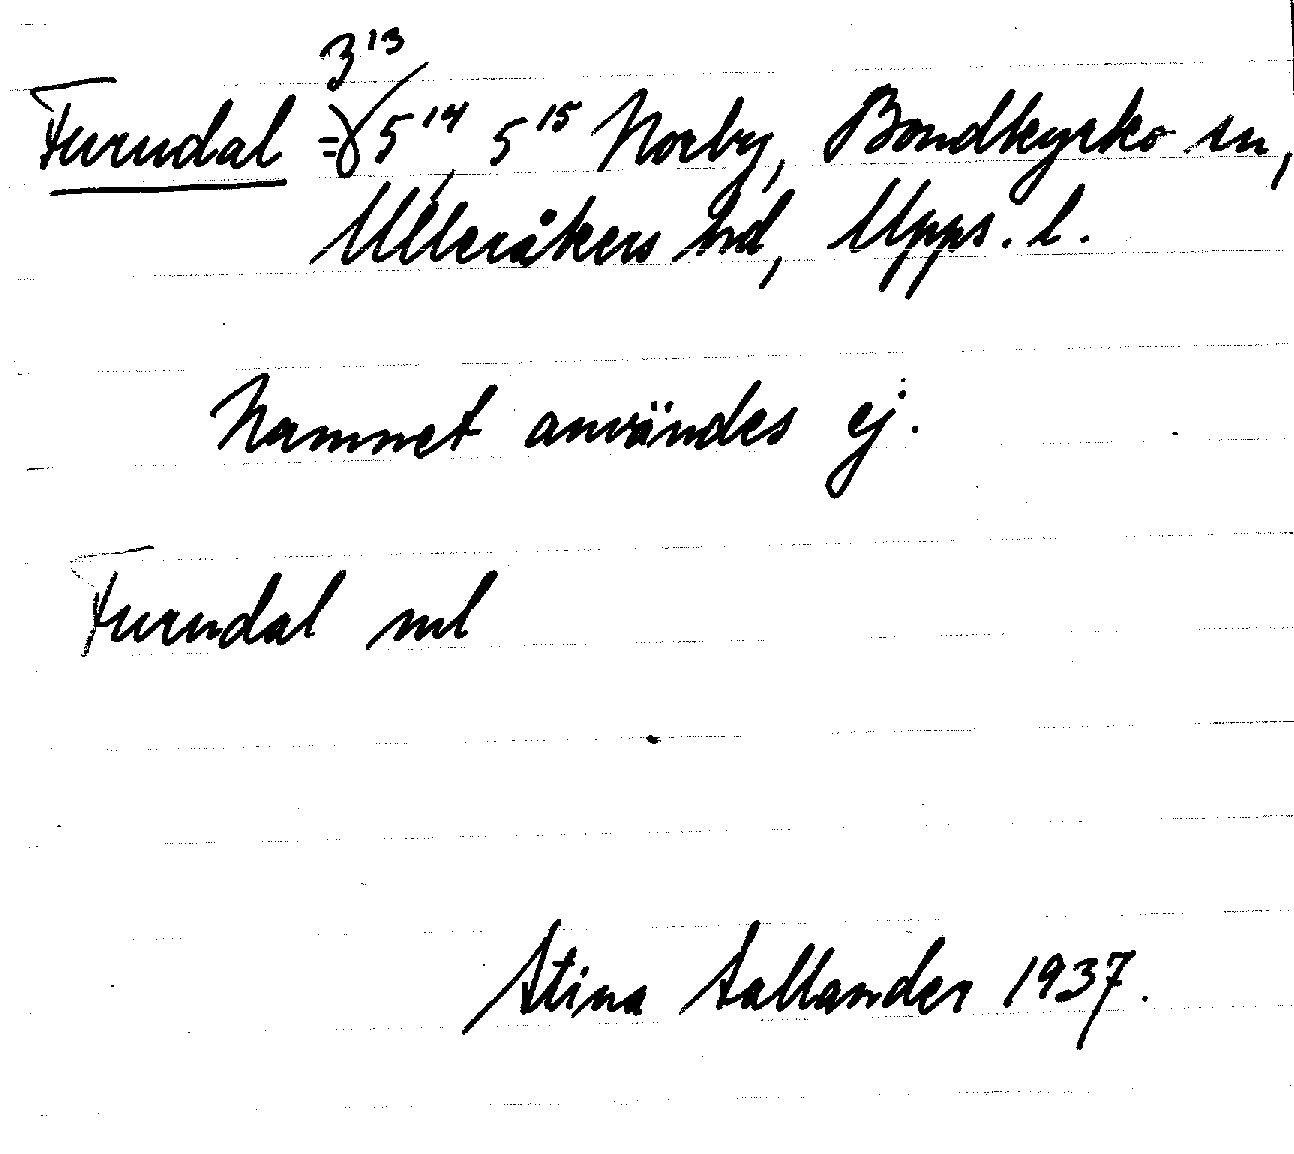 3¹³
Furudal = 5¹⁴, 5¹⁵ Norby, Bondkyrko sn,
Ulleråkers hd, Upps. l.
Namnet användes ej.
Furudal ml
Stina Sallander 1937.